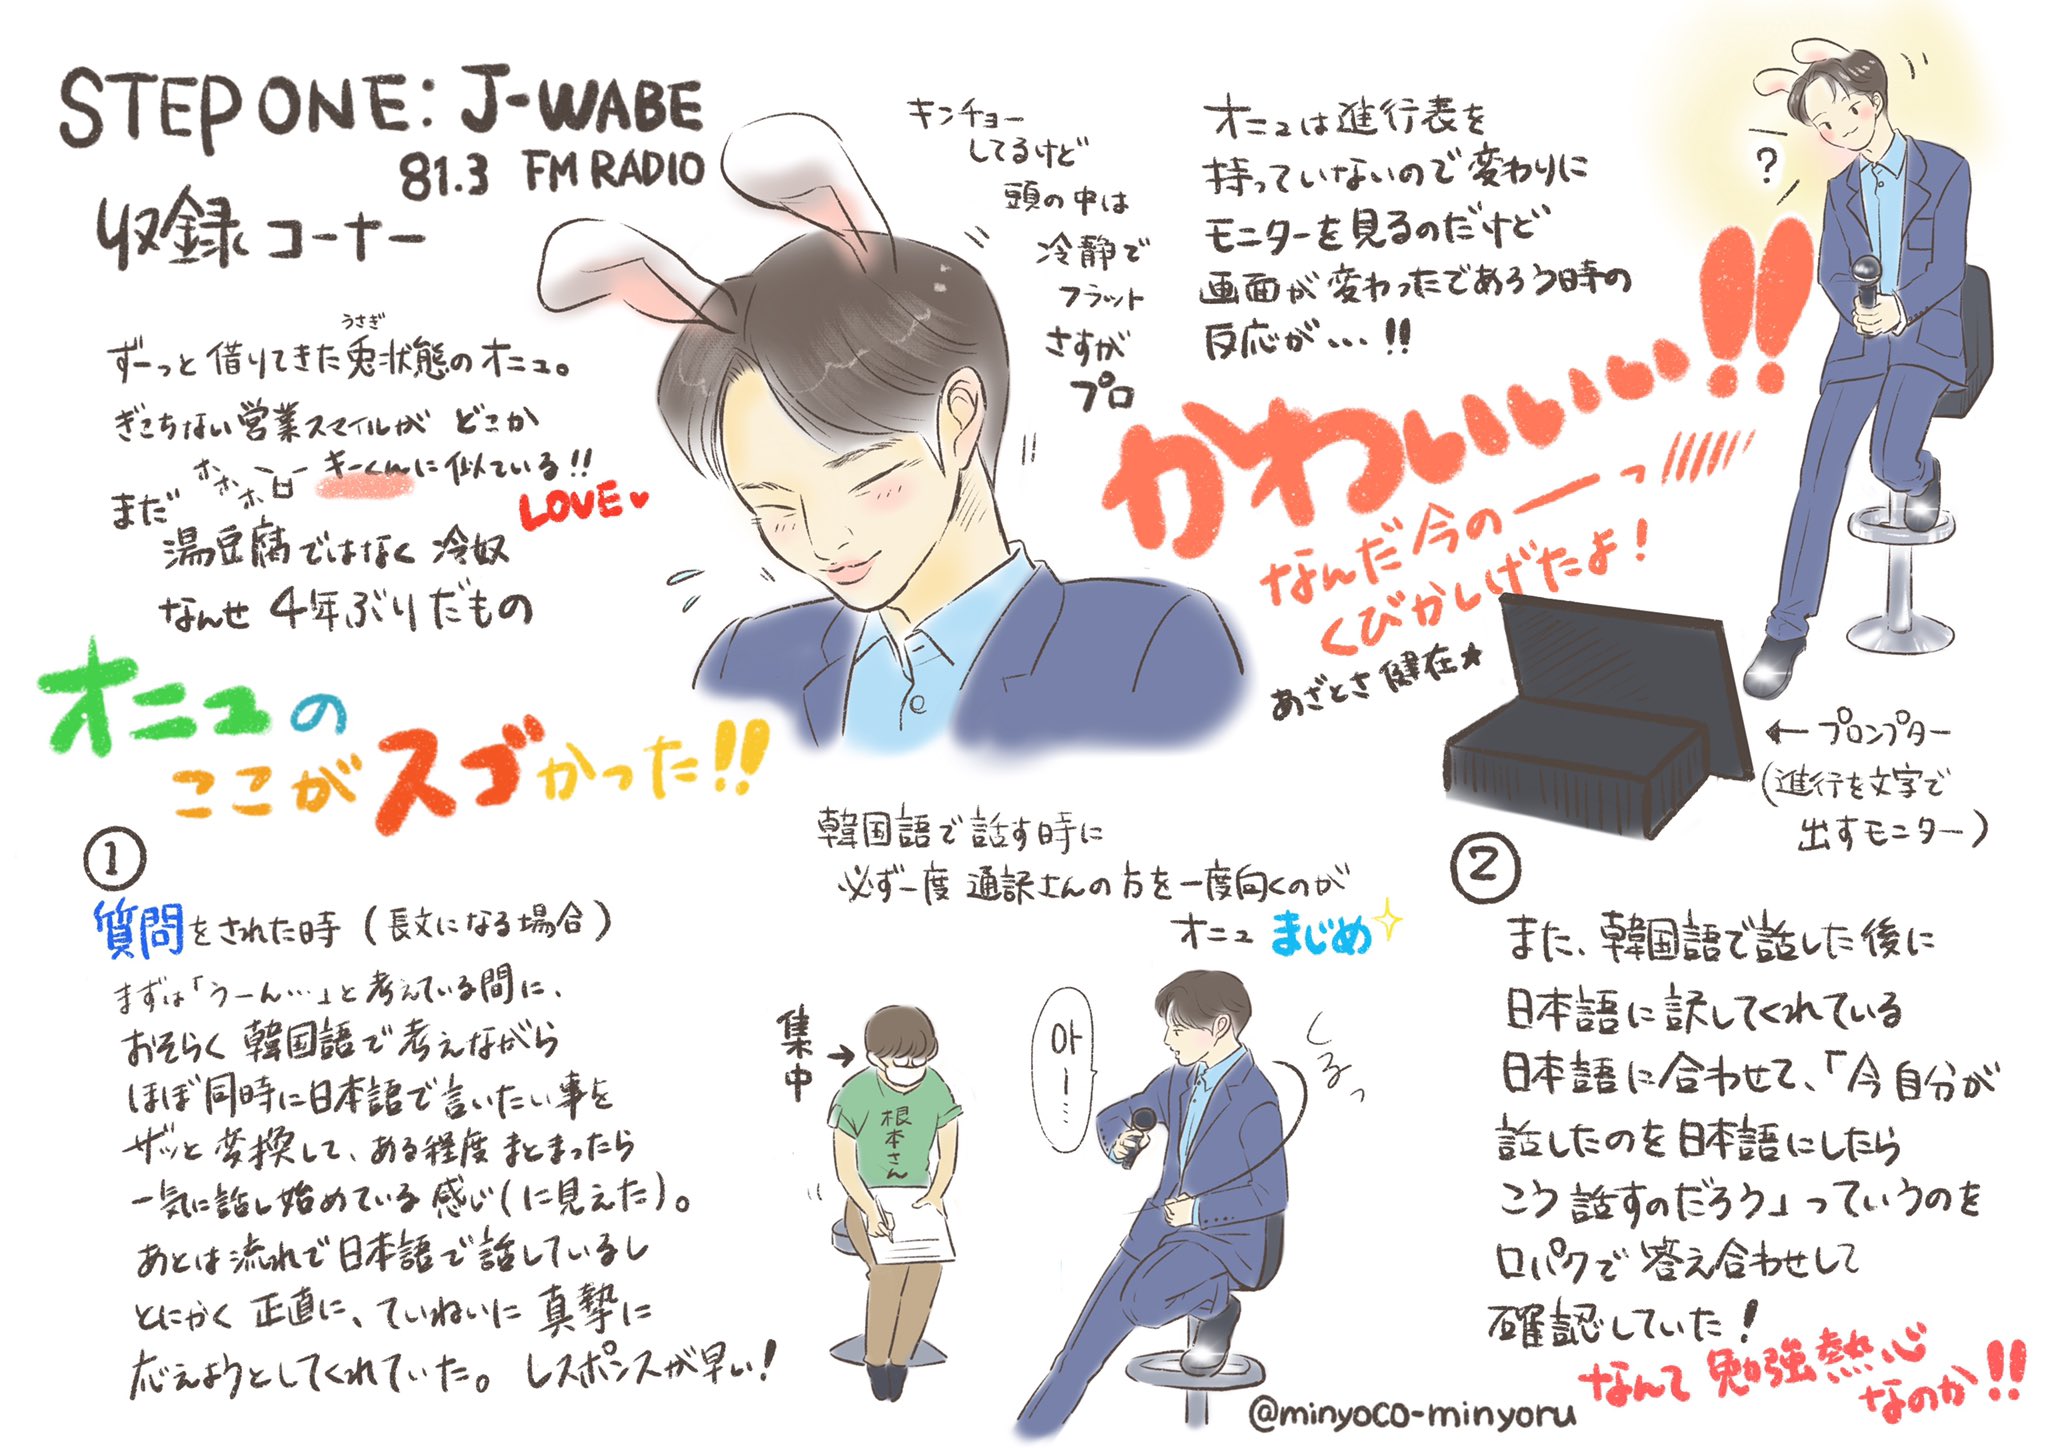 STEP ONE: J-WABE
81.3 FM RADIO
収録コーナー
うさぎ
ずーっと借りてきた兎状態のオニュ。
ぎこちない営業スマイルが どこか
キーくんに似ている!!
LOVE♥
まだ
湯豆腐ではなく 冷奴
なんせ 4年ぶりだもの
キンチョー
してるけど
頭の中は
冷静で
フラット
さすが
プロ
オニュは進行表を
持っていないので変わりに
モニターを見るのだけど
画面が変わったであろう時の
反応が…!!
?
かわいいいい!!
なんだ今のーーっ
くびかしげたよ!
あざとさ健在★
←プロンプター
(進行を文字で
出すモニター)
オニュの
ここがスゴかった!!
①
質問をされた時(長文になる場合)
まずは「うーん…」と考えている間に、
おそらく韓国語で考えながら
ほぼ同時に日本語で言いたい事を
ザッと変換して、ある程度まとまったら
一気に話し始めている感じ(に見えた)。
あとは流れで日本語で話しているし
とにかく正直に、ていねいに真摯に
応えようとしてくれていた。レスポンスが早い!
韓国語で話す時に
必ず一度 通訳さんの方を一度向くのが
オニュ まじめ
集中→
根本さん
아ー…
くるっ
②
また、韓国語で話した後に
日本語に訳してくれている
日本語に合わせて、「今自分が
話したのを日本語にしたら
こう話すのだろう」っていうのを
口パクで答え合わせして
確認していた!
なんて勉強熱心
なのか!!
@minyoco-minyoru